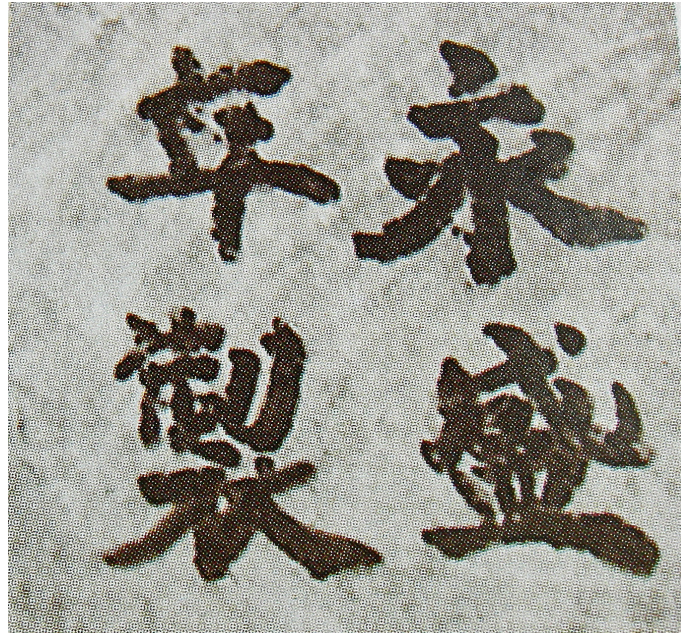 永盛
年製